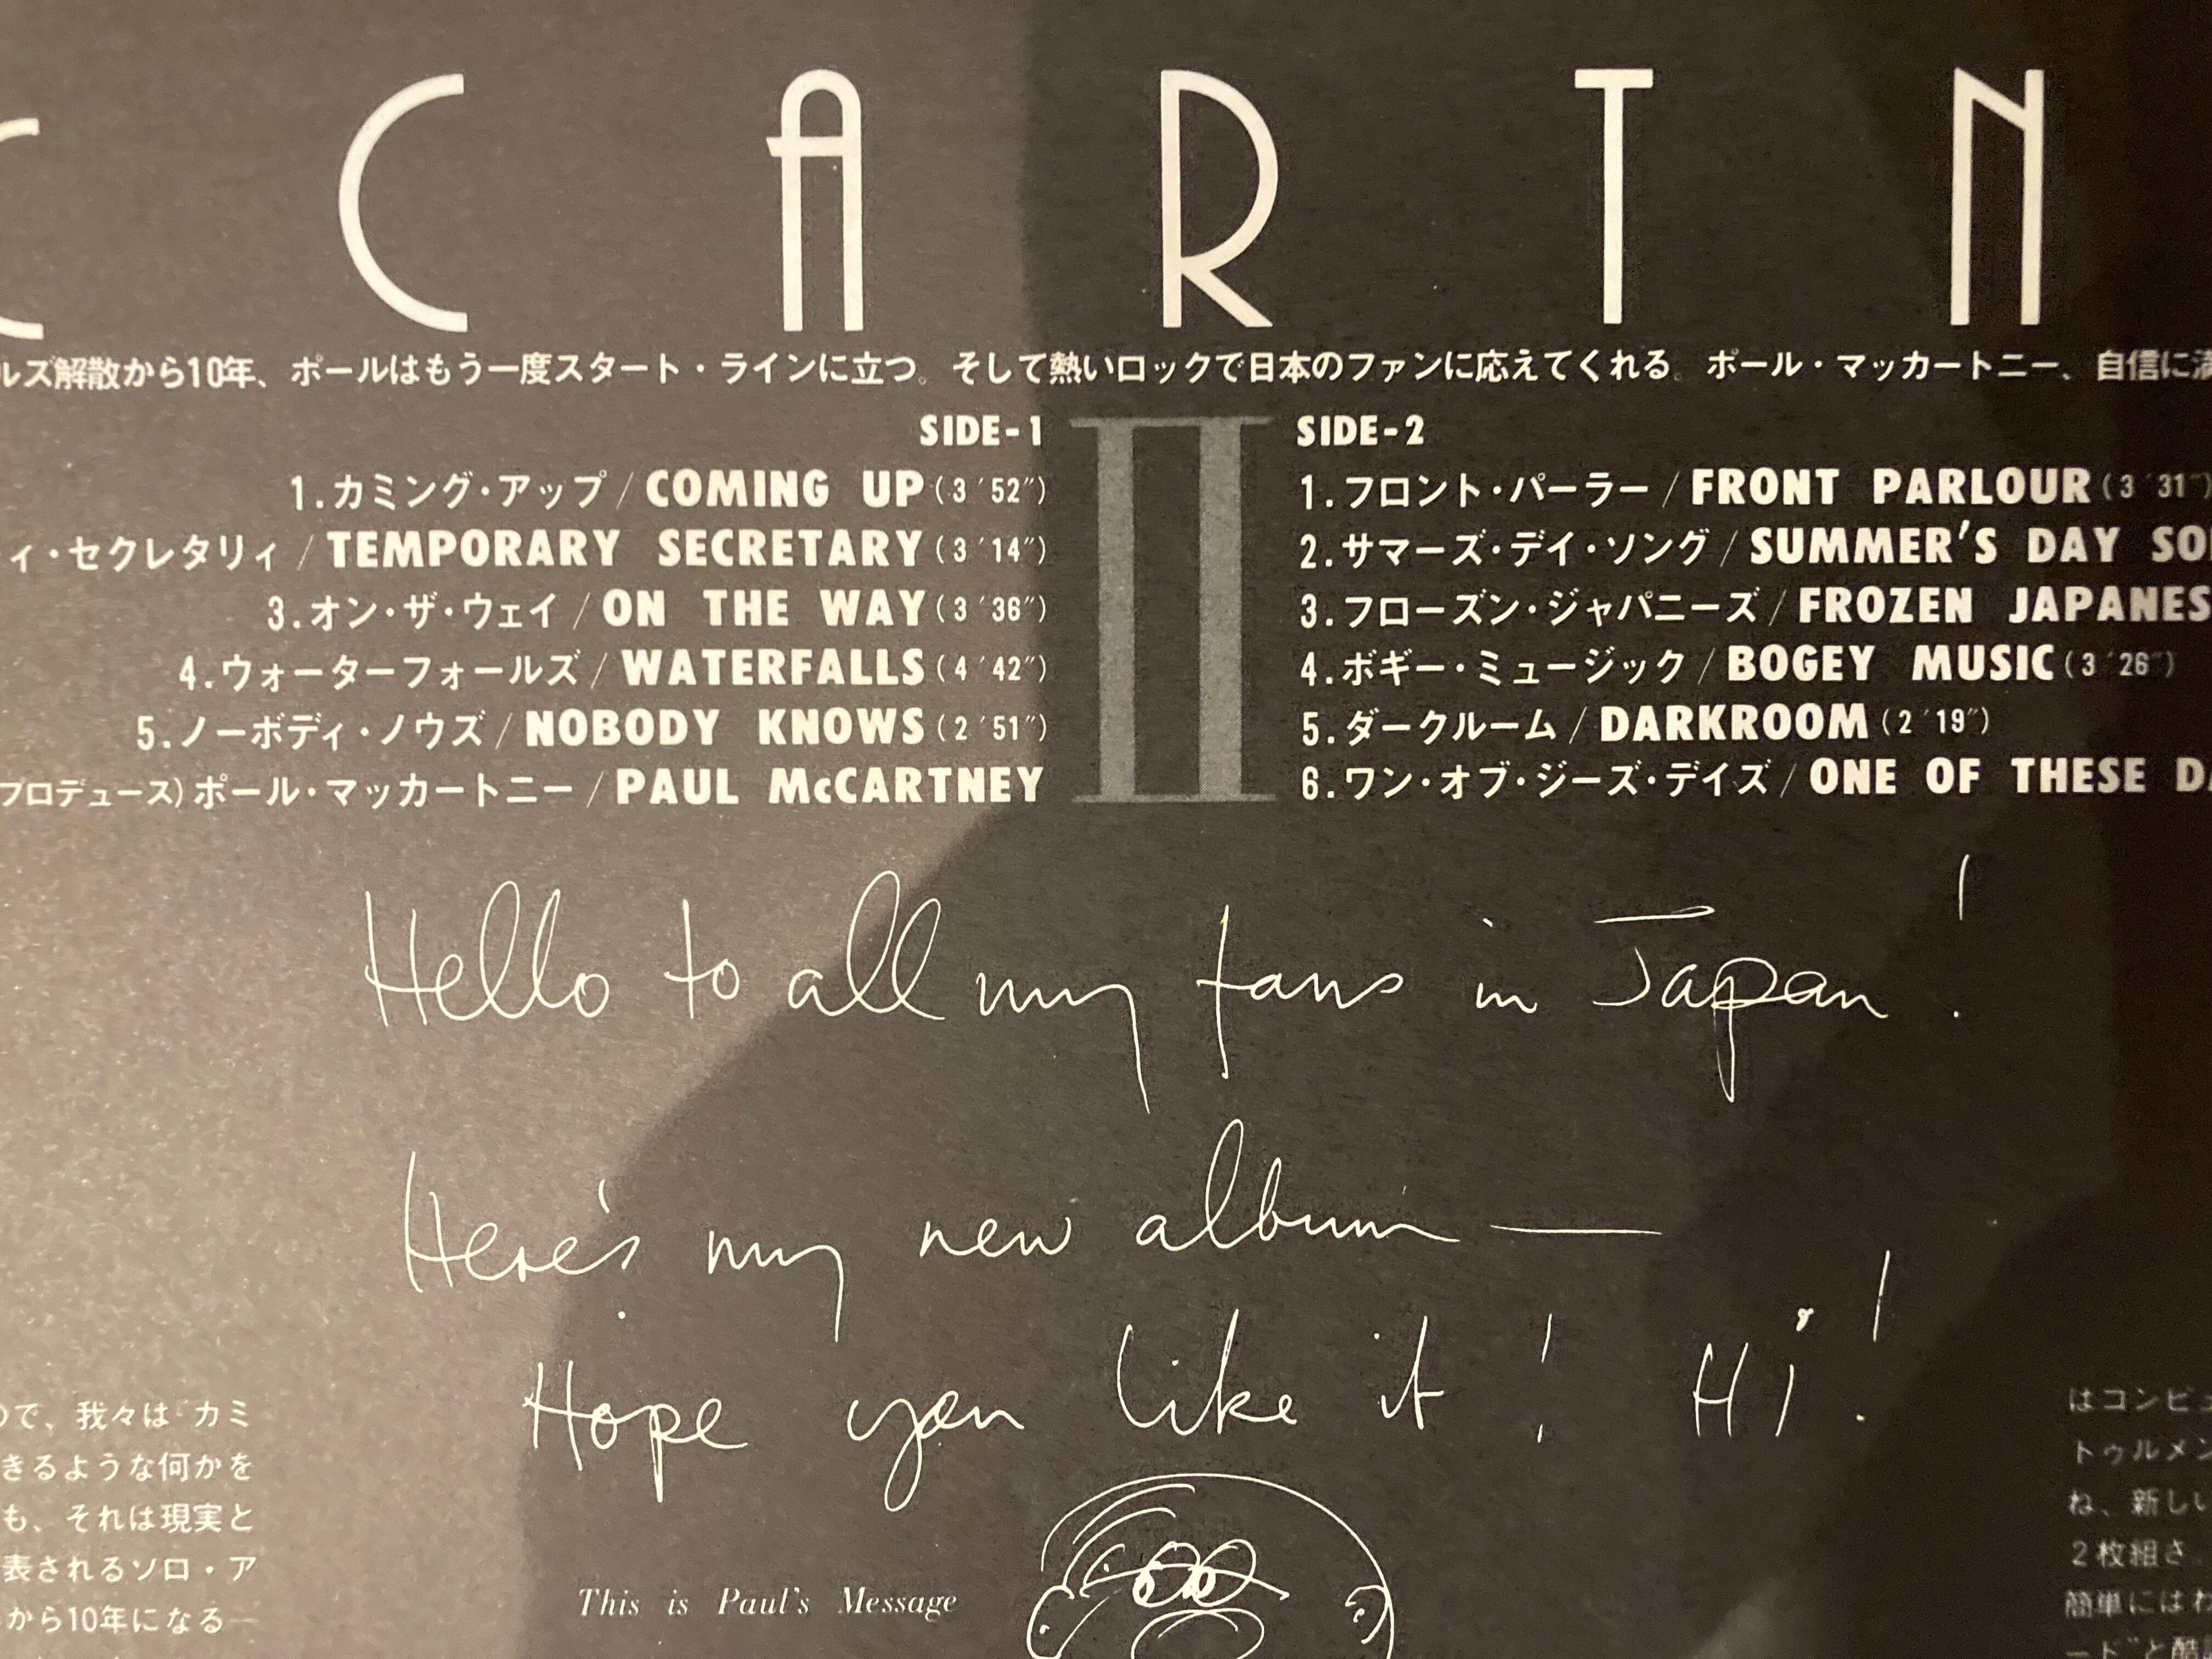 C C A R T N
ルズ解散から10年、ポールはもう一度スタート・ラインに立つ。そして熱いロックで日本のファンに応えてくれる。ポール・マッカートニー、自信に満
II
SIDE-1
1.カミング・アップ/COMING UP(3′52″)
ィ・セクレタリィ/TEMPORARY SECRETARY(3′14″)
3.オン・ザ・ウェイ/ON THE WAY(3′36″)
4.ウォーターフォールズ/WATERFALLS(4′42″)
5.ノーボディ・ノウズ/NOBODY KNOWS(2′51″)
プロデュース)ポール・マッカートニー/PAUL McCARTNEY
SIDE-2
1.フロント・パーラー/FRONT PARLOUR(3′31″)
2.サマーズ・デイ・ソング/SUMMER'S DAY SO
3.フローズン・ジャパニーズ/FROZEN JAPANES
4.ボギー・ミュージック/BOGEY MUSIC(3′26″)
5.ダークルーム/DARKROOM(2′19″)
6.ワン・オブ・ジーズ・デイズ/ONE OF THESE DA
Hello to all my fans in Japan!
Here's my new album —
Hope you like it! Hi!
This is Paul's Message
ので、我々は“カミ
きるような何かを
も、それは現実と
表されるソロ・ア
から10年になる—
はコンピュ
トゥルメン
ね、新しい
2枚組さ
簡単にはわ
ード”と酷